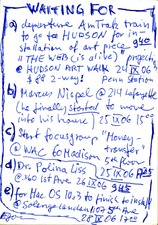 WAITING FOR
a) departure AmTrak train
to go to HUDSON for in-
stallation of art piece 940
"THE WEB (is alive) projectn,
@ HUDSON ART WALK 24 IX 06
@ 2-way! Penn Station
b) Marcus Nispel @ 214 Lafayette
(he finally started to move
into his house) 25 IX 06 1500
c) start focusgroup "Money-
transfer"
@ WAC @ Madison 5th Floor
25 IX 06
d) Dr. Polina Liss
@ 360 1st Ave 26 IX 06 945
e) for Mac OS 10,3 to finish to install
@ Solange Landau 107 5th Ave
28 IX 06 1200